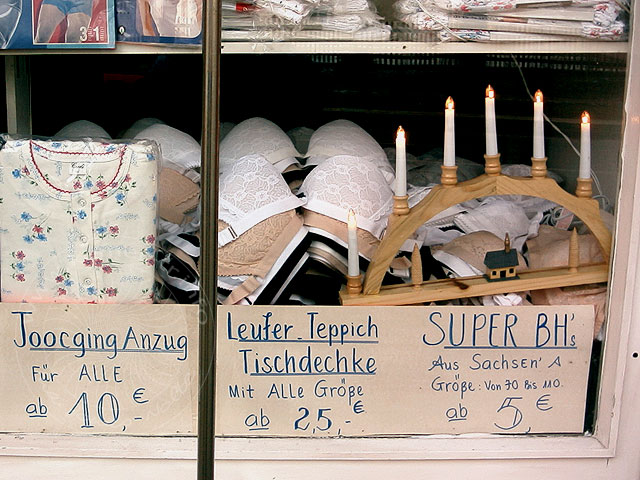 3 in 1
Joocging Anzug
Für ALLE
ab 10,- €
Leufer-Teppich
Tischdechke
Mit Alle Größe
ab 25,- €
SUPER BH's
Aus Sachsen' A
Größe: Von 70 Bis 110.
ab 5 €